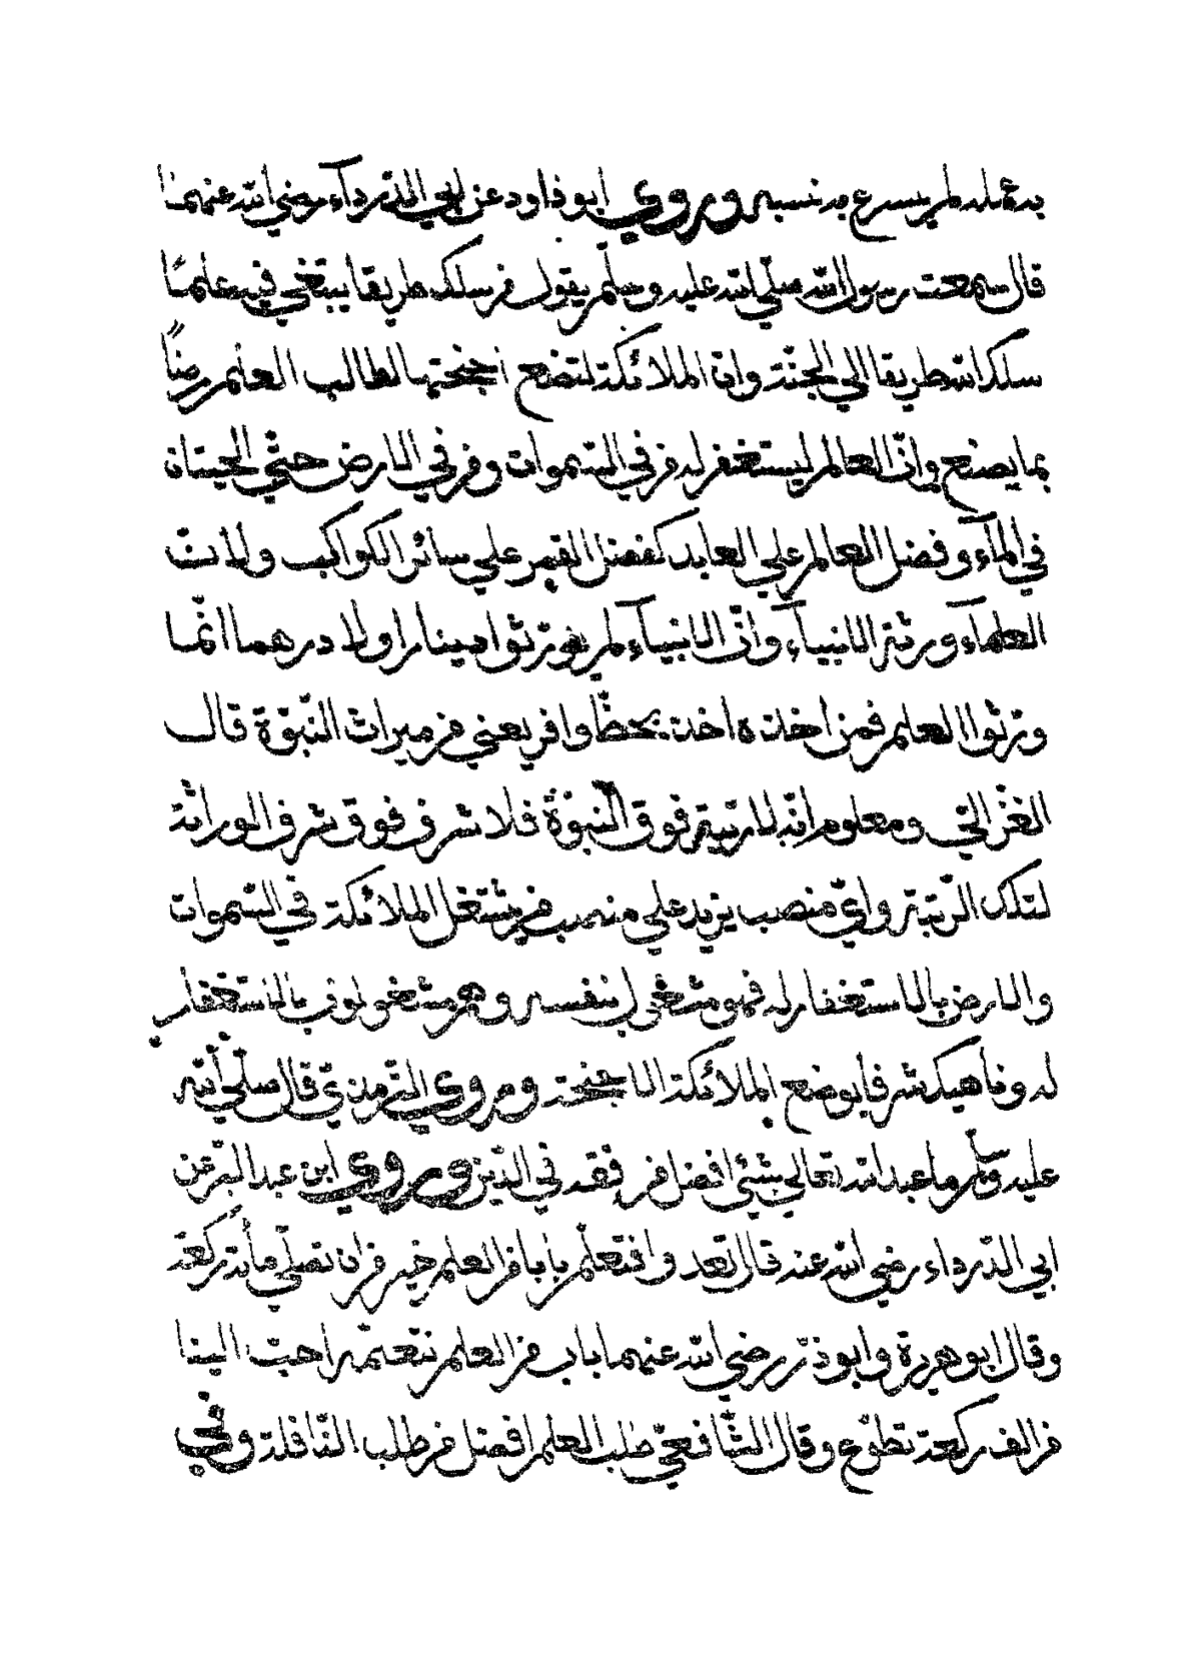 به عمله لم يسرع به نسبه وروي ابو داود عن ابي الدّرداء رضي الله عنهما
قال سمعت رسول الله صلّي الله عليه وسلّم يقول من سلك طريقا يبتغي فيه علما
سلك الله طريقا الي الجنّة وان الملائكة لتضع اجنحتها لطالب العلم رضًا
بما يصنع وانّ العالم ليستغفر له من في السّموات ومن في الارض حتّي الحيتان
في المآء وفضل العالم علي العابد كفضل القمر علي سائر الكواكب ولانّ
العلمآء ورثة الانبيآء وانّ الانبيآء لم يورّثوا دينارا ولا درهما انّما
ورّثوا العلم فمن اخذه اخذ بحظّ وافر يعني من ميراث النّبوّة قال
الغزّالي ومعلوم انّه لا رتبة فوق النّبوّة فلا شرف فوق شرف الوراثة
لتلك الرّتبة وايّ منصب يزيد علي منصب من يشتغل الملائكة في السّموات
والارض بالاستغفار له فهو مشغول بنفسه وهم مشغولون بالاستغفار
له وناهيك شرفا بوضع الملائكة الاجنحة وروي التّرمذيّ قال صلّي الله
عليه وسلّم ما عبد الله تعالي بشئ افضل من فقه في الدّين وروي ابن عبد البرّ عن
ابي الدّرداء رضي الله عنه قال تعد وافتعلّم بابا من العلم خير من ان تصلّي مأئة ركعة
وقال ابو هريرة وابو ذرّ رضي الله عنهما باب من العلم نتعلّمه احبّ الينا
من الف ركعة تطوّع وقال الشّافعيّ طلب العلم افضل من طلب النّافلة وفي